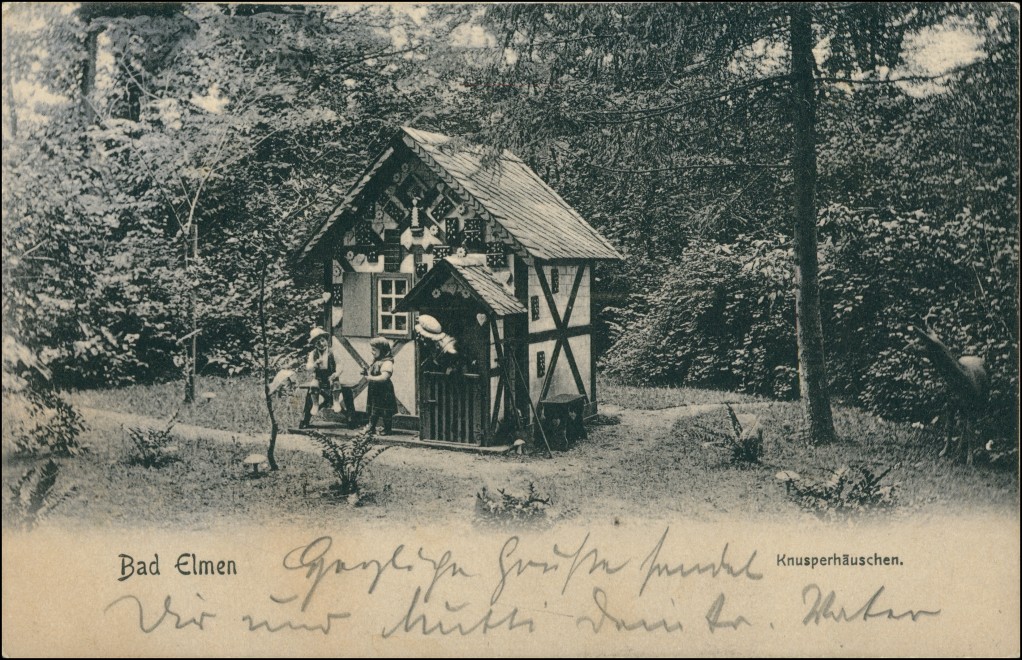 Bad Elmen
Knusperhäuschen.
Herzliche Grüße sendet
Dir und Mutti Dein tr. Vater